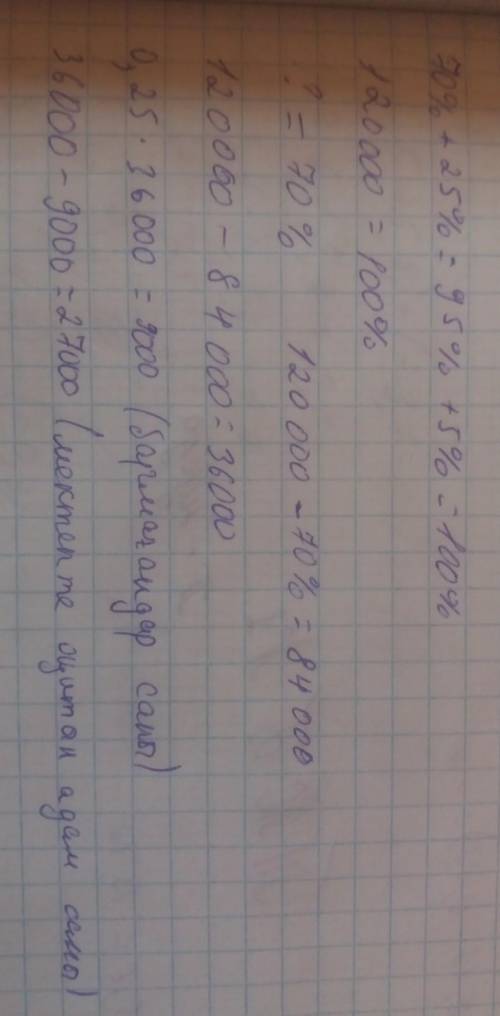 70% + 25% = 95% + 5% = 100%
120000 = 100%
? = 70% 120 000 - 70% = 84 000
120000 - 84 000 = 36000
0,25 · 36000 = 9000 (бармағандар саны)
36000 - 9000 = 27000 (мектепте оқитан адам саны)